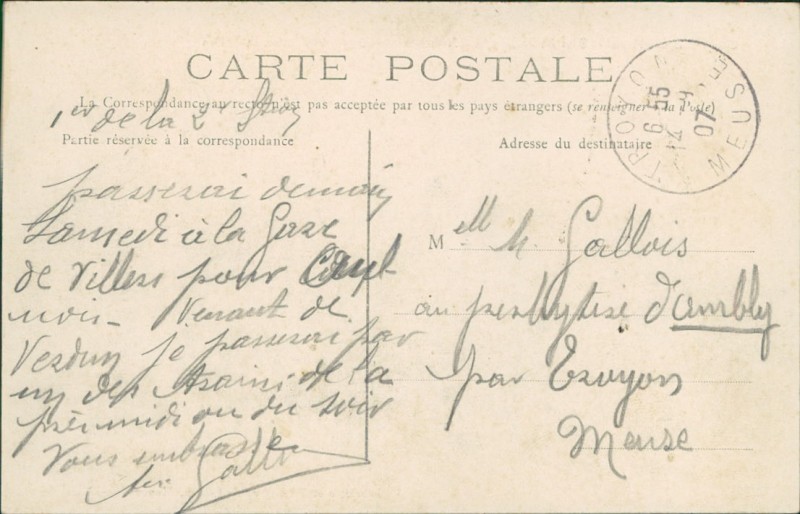 CARTE POSTALE
La Correspondance au recto n'est pas acceptée par tous les pays étrangers (se renseigner à la Poste)
1er de la 2e
Partie réservée à la correspondance
passerai demain
Samedi à la Gare
de Villers pour
Venant de
Verdun je passerai par
un des trains de la
près midi ou du soir
Vous embrasse
Gallois
Adresse du destinataire
Melle M. Gallois
au presbytère d'Ambly
par Troyon
Meuse
TROYON
6 55
14
07
MEUSE